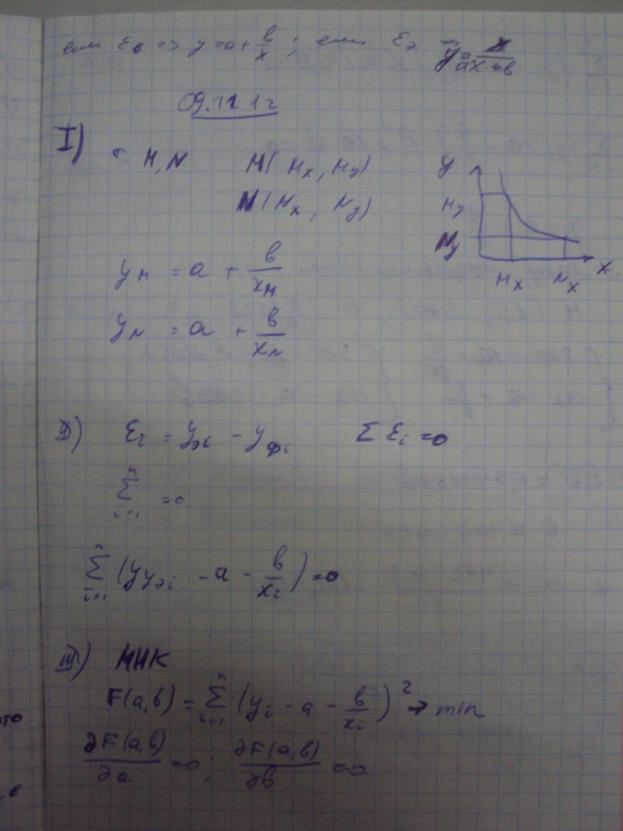 если ε₆ => y = a + в/x ; если ε₇ y = x/(ax+в)
09.11.12
I) т M, N M(Mx, My)
N(Nx, Ny)
y
My
Ny
Mx Nx x
yM = a + в/xM
yN = a + в/xN
II) εi = yэi - yфi Σ εi = 0
Σ i=1 n = 0
Σ i=1 n (yэi - a - в/xi) = 0
III) МНК
F(a,в) = Σ i=1 n (yi - a - в/xi)² → min
∂F(a,в)/∂a = 0 ; ∂F(a,в)/∂в = 0